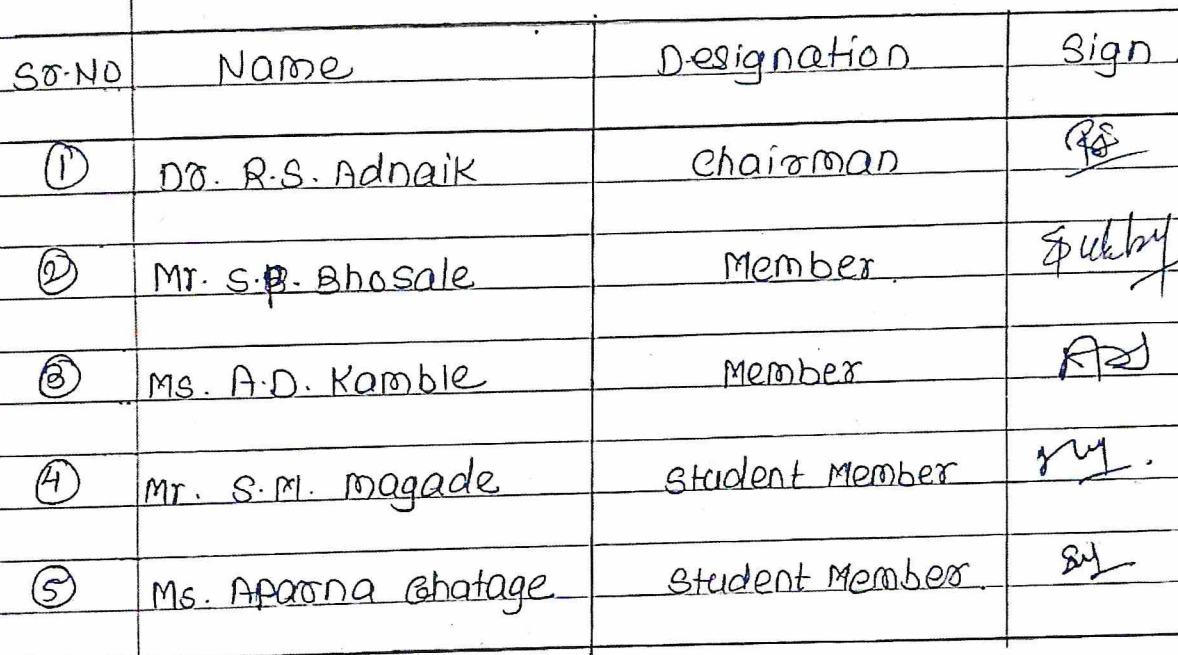 Sr.No Name Designation Sign
① Dr. R.S. Adnaik Chairman
② Mr. S.P. Bhosale Member
③ Ms. A.D. Kamble Member
④ Mr. S.M. Magade Student Member
⑤ Ms. Aparna Ghatage Student Member.